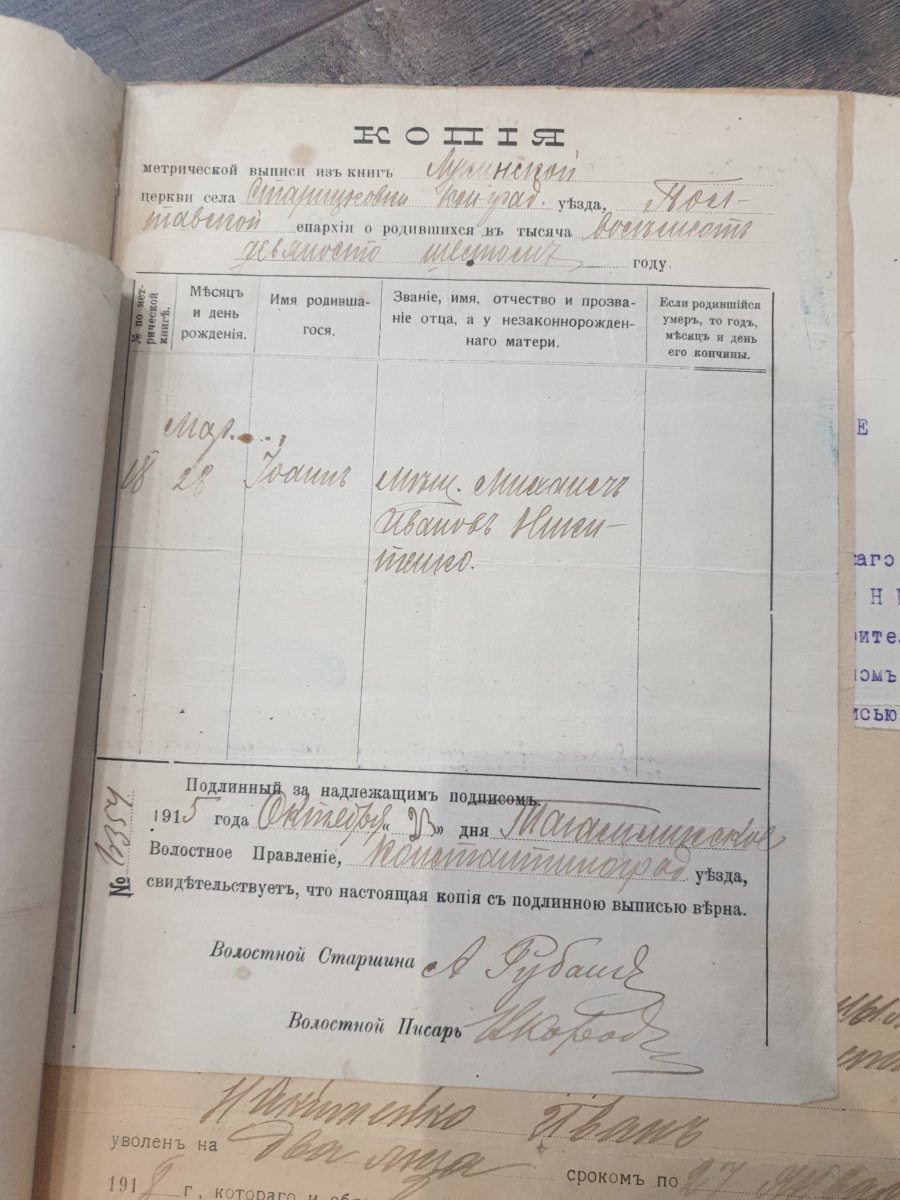 КОПІЯ
метрической выписи изъ книгъ
церкви села Старицковки Кон-град. уѣзда, Пол-
тавской епархіи о родившихся въ тысяча восемьсотъ
девяносто шестомъ году.
№ по мет-
рической
книгѣ.
Мѣсяцъ
и день
рожденія.
Имя родивша-
гося.
Званіе, имя, отчество и прозва-
ніе отца, а у незаконнорожден-
наго матери.
Если родившійся
умеръ, то годъ,
мѣсяцъ и день
его кончины.
Мар.
18 28 Іоаннъ
Мѣщ. Михаилъ
Ивановъ Ники-
тенко.
Подлинный за надлежащимъ подписомъ.
1915 года Октября „23» дня
Волостное Правленіе, Константиноград уѣзда,
свидѣтельствуетъ, что настоящая копія съ подлинною выписью вѣрна.
№ 3354
Волостной Старшина А Рубанъ
Волостной Писарь
Е
каго
Н
рител
номъ
исью
Никитенко Иванъ
уволенъ на два м-ца срокомъ по 27
1918 г., котораго и